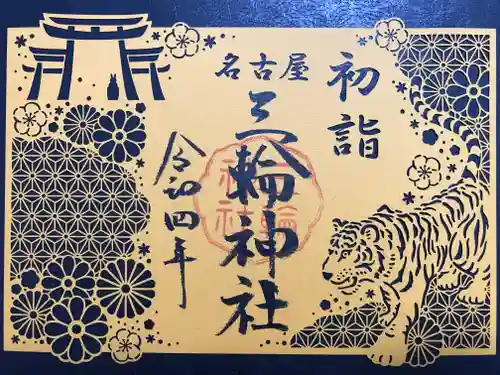 初詣
名古屋
三輪神社
令和四年